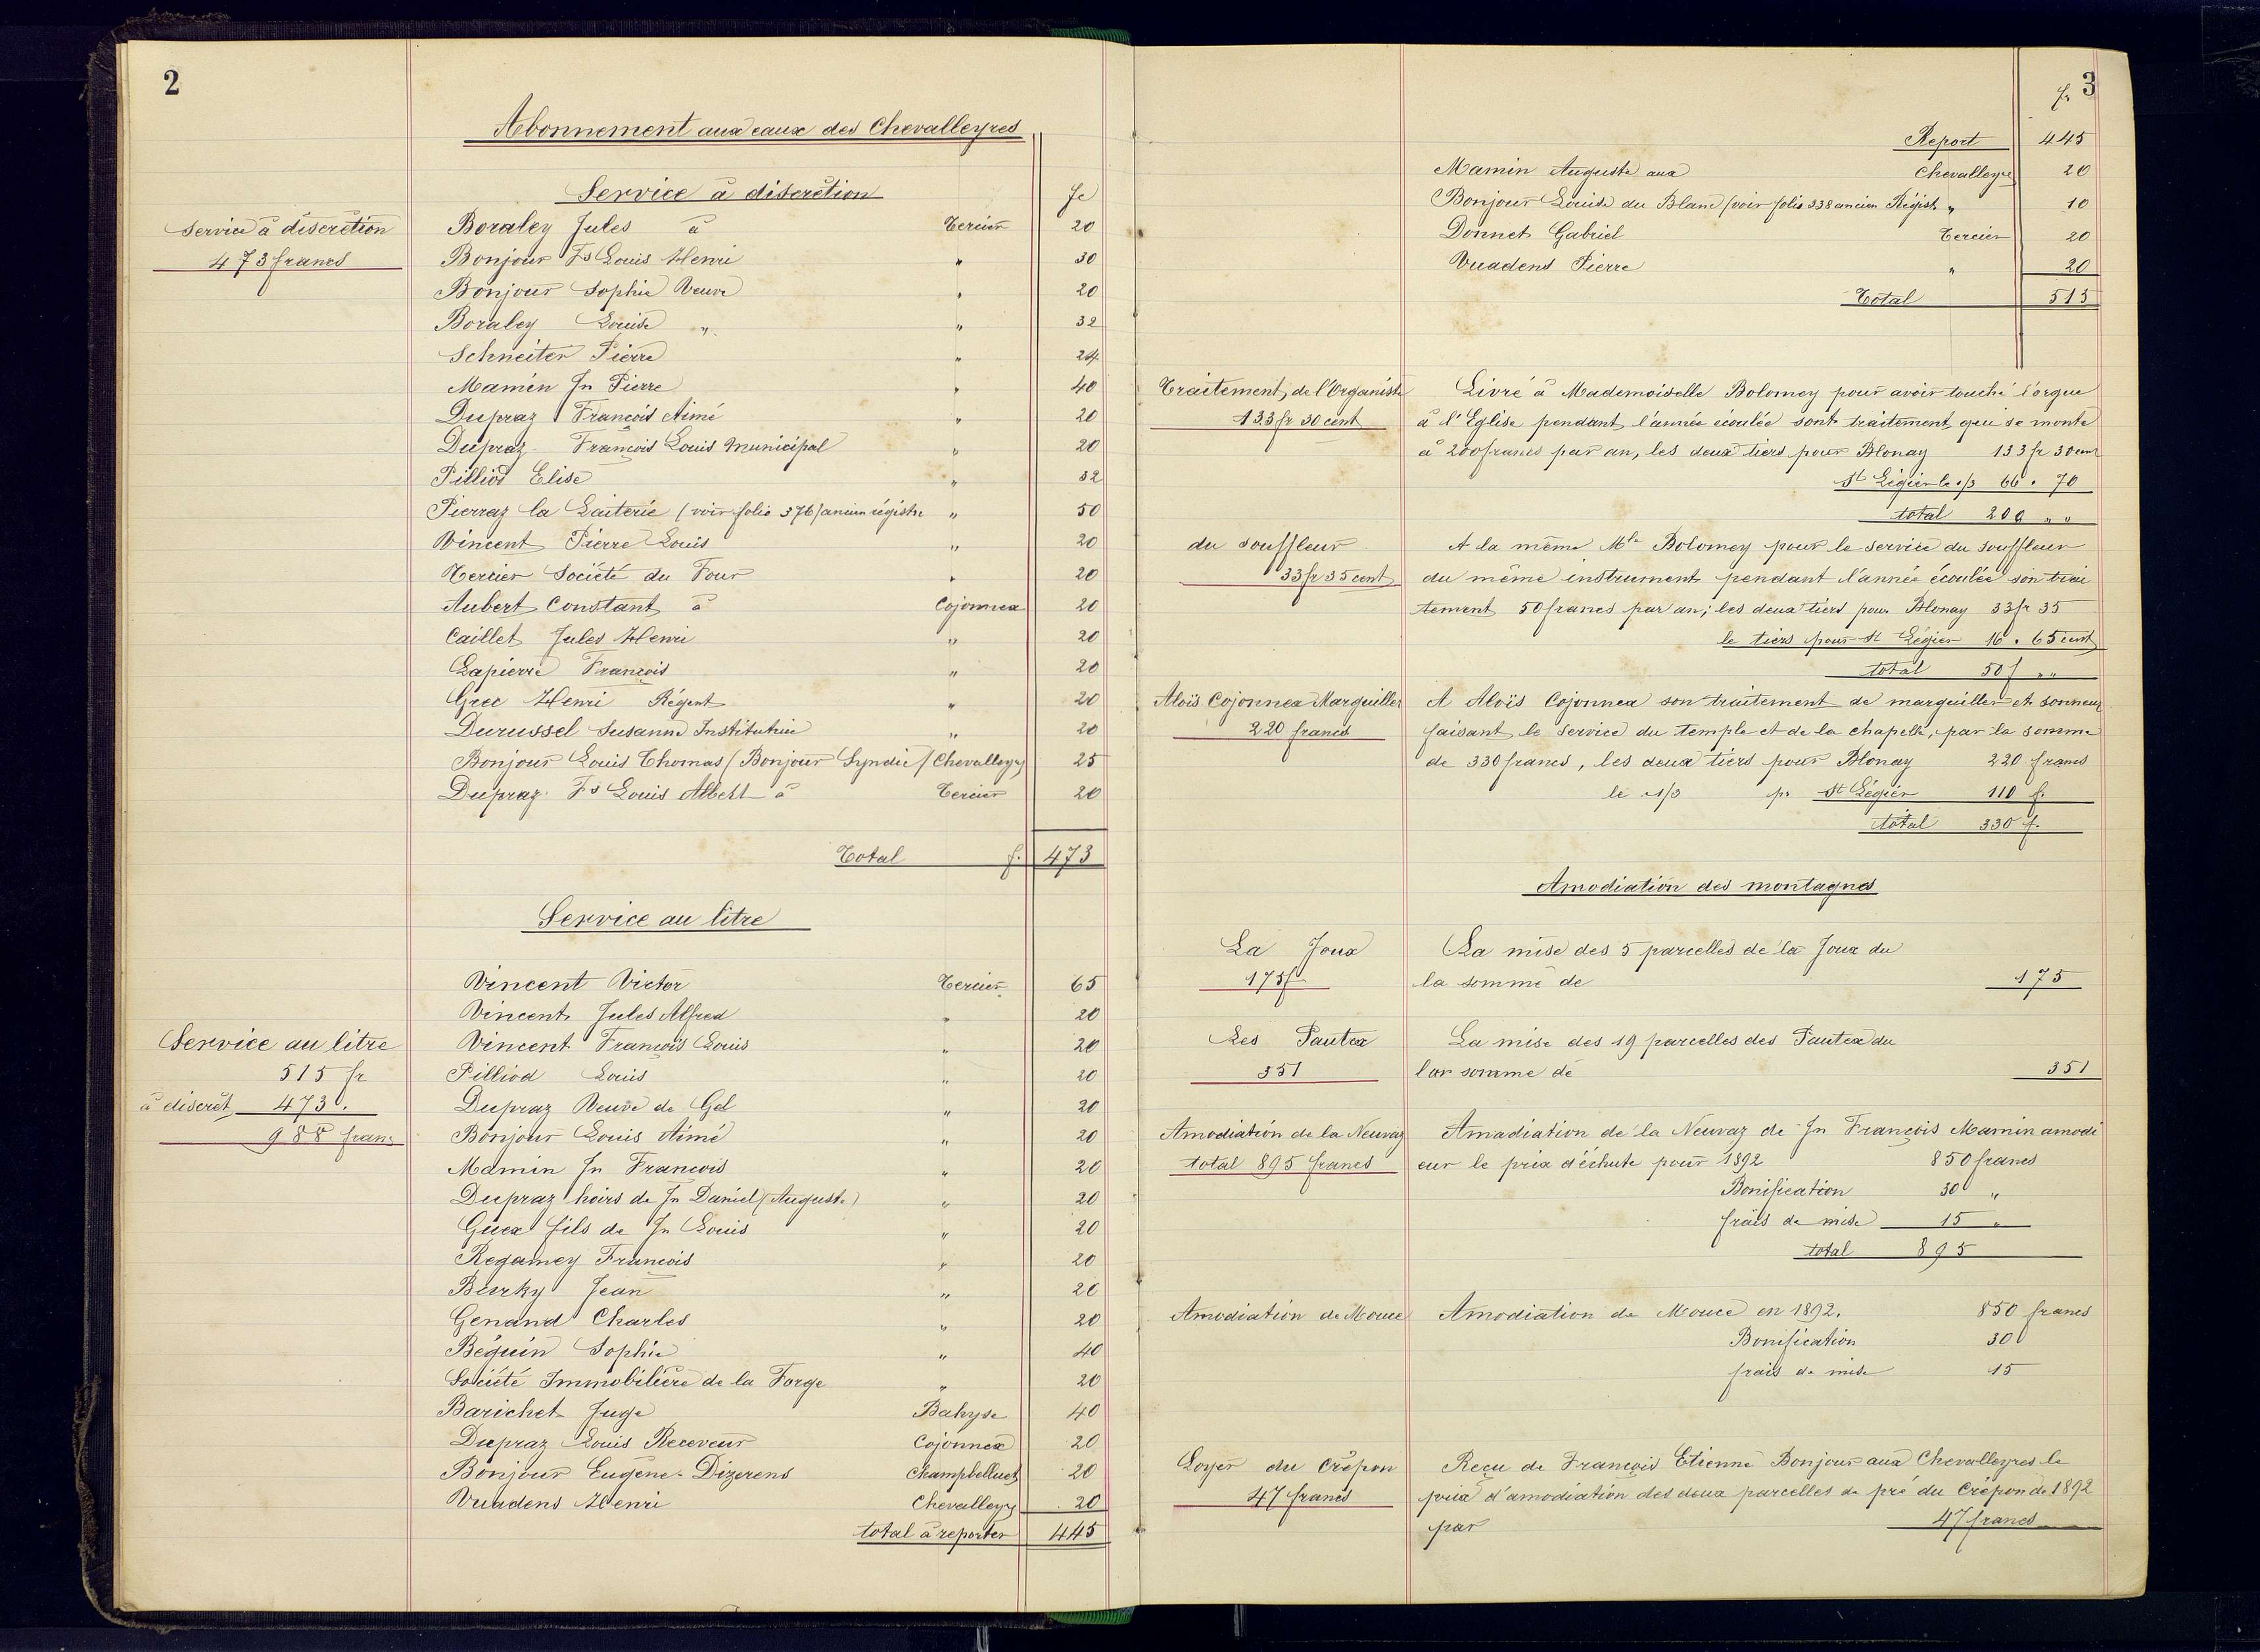 2
Abonnement aux eaux des Chevalleyres
Service à discrétion
fc
Service à discrétion
473 francs
Boraley Jules à Tercier 20
Bonjour Fs Louis Henri " 30
Bonjour Sophie Veuve " 20
Boraley Louise " " 32
Schneiter Pierre " 24
Mamin Jn Pierre " 40
Dupraz François Aimé " 20
Dupraz François Louis Municipal " 20
Pilliod Elise " 32
Pierraz la Laiterie (voir folio 376) ancien régistre " 50
Vincent Pierre Louis " 20
Tercier Société du Four " 20
Aubert Constant à Cojonnex 20
Caillet Jules Henri " 20
Lapierre François " 20
Grec Henri Régent " 20
Durussel Susanne Institutrice " 20
Bonjour Louis Thomas (Bonjour Syndic) Chevalleyres 25
Dupraz Fs Louis Albert à Tercier 20
Total f. 473
Service au litre
Service au litre
515 fr
à discrét. 473 .
988 francs
Vincent Victor Tercier 65
Vincent Jules Alfred " 20
Vincent François Louis " 20
Pilliod Louis " 20
Dupraz Veuve de Gel " 20
Bonjour Louis Aimé " 20
Mamin Jn François " 20
Dupraz hoirs de Jn Daniel (Auguste) " 20
Guex fils de Jn Louis " 20
Regamey François " 20
Burky Jean " 20
Genand Charles " 20
Béguin Sophie " 40
Société Immobilière de la Forge " 20
Barichet Juge Bahyse 40
Dupraz Louis Receveur Cojonnex 20
Bonjour Eugène-Dizerens Champbelluet 20
Vuadens Henri Chevalleyres 20
total à reporter 445
3
fr
Report 445
Mamin Auguste aux Chevalleyres 20
Bonjour Louise du Blanc (voir folio 338 ancien Régist. " 10
Donnet Gabriel Tercier 20
Vuadens Pierre " 20
Total 515
Traitement de l'Organiste
133 fr 30 cent
Livré à Mademoiselle Bolomey pour avoir touché l'orgue
à l'Eglise pendant l'année écoulée sont traitement qui se monte
à 200 francs par an, les deux tiers pour Blonay 133 fr 30 cent
St Légier le 1/3 66 . 70
total 200 " "
du souffleur
33 fr 35 cent
A la même Mlle Bolomey pour le service du souffleur
du même instrument pendant l'année écoulée son trai
tement 50 francs par an; les deux tiers pour Blonay 33 fr 35
le tiers pour St Légier 16 . 65 cent
total 50 f " "
Aloïs Cojonnex Marguiller
220 francs
A Aloïs Cojonnex son traitement de marguiller et sonneur
faisant le service du temple et de la chapelle, par la somme
de 330 francs, les deux tiers pour Blonay 220 francs
le 1/3 pr St Légier 110 f.
total 330 f.
Amodiation des montagnes
La Joux
175 f
La mise des 5 parcelles de la Joux du
la somme de 175
Les Pautex
351
La mise des 19 parcelles des Pautex du
la somme de 351
Amodiation de la Neuvaz
total 895 francs
Amadiation de la Neuvaz de Jn François Mamin amodi
eur le prix d'échute pour 1892 850 francs
Bonification 30 "
frais de mise 15 "
total 895
Amodiation de Mouce
Amodiation de Mouce en 1892. 850 francs
Bonification 30
frais de mise 15
Loyer du Crépon
47 francs
Reçu de François Etienne Bonjour aux Chevalleyres le
prix d'amodiation des deux parcelles de pré du Crépon de 1892
par 47 francs